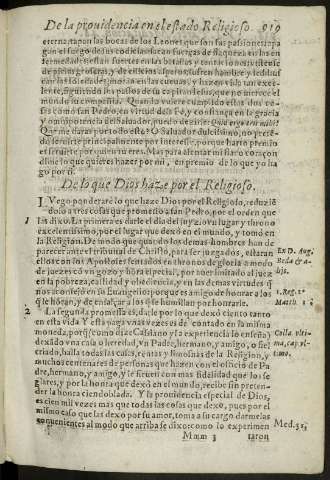 De la prouidencia en el estado Religioso. 919
eterna, tapan las bocas de los Leones que son sus passiones,
gan el fuego de las codicias, sacan fuerças de flaqueza en las en
fermedades; siẽten fuertes en las batallas y
excelente, siguiendo los passos de sus Capitanes, que no merece el
mundo su compañia. Quando vuiere cumplido estas dos co
sas como san Pedro, con virtud desta fe, y confiança en la gracia
y omnipotencia del Saluador, puedo dezirle: Quid ergo erit mihi?
Que me daras por todo esto? O Saluador dulcissimo, no preten
do seruirte principalmente por interesse, porque harto premio
es seruirte por quien tu eres. Mas para alentar mi flaco coraçon
dime lo que quieres hazer por mi, en premio de lo que yo ha
go por ti.
De lo que Dios haze por el Religioso.
LVego ponderarè lo que haze Dios por el Religioso, reduziẽ
dolo a tres cosas que prometio a san Pedro, por el orden que
1 las dixo. La primera es darle el dia del juyzio, vn lugar y throno
excelentissimo, por el lugar que dexò en el mundo, y tomò en
la Religion. De modo que quãdo los demas hombres han de
parecer ante el tribunal de Christo, para ser juzgados, estaran
ellos con los Apostoles sentados en thronos de gloria a modo
de juezes cõ vn gozo y hõra especial, por auer imitado al juez
en la pobreza, castidad y obediencia, y en las demas virtudes q̃
nos aconsejò en su Euangelio; porque es amigo de honrar a los
q̃ le hõran, y de ensalçar a los q̃ se humillan por honrarle.
Ex D. Aug.
Beda & a-
lijs.
1. Reg. 2
Matth. 1
2 La segunda promessa es, darle por lo que dexò ciento tanto
en esta vida. Y esta paga vnas vezes da contado en la misma
moneda, porq̃ (como dize Casiano y la experiencia lo enseña)
dexãdo vna casa o heredad, vn Padre, hermano, y amigo, o sei
criado, halla todas las casas, rentas y limosnas de la Religion, y
muchos centenares de personas que hazen con el oficio de Pa
dre, hermano, y amigo, y le siruen con mas fidelidad que los se
glares, y por la honra que dexò en el mundo, recibe sin preten-
der la honra cien doblada. Y la prouidencia especial de Dios,
es cien mil vezes mas que todas las cosas que dexò, pues por el
mismo caso que las dexò por su amor, toma a su cargo darselas
conuenientes al modo que arriba se dixo: como lo experimen
Colla. vlti-
ma, cap. vl-
timo.
Med. 31,
Mmm 3 taron